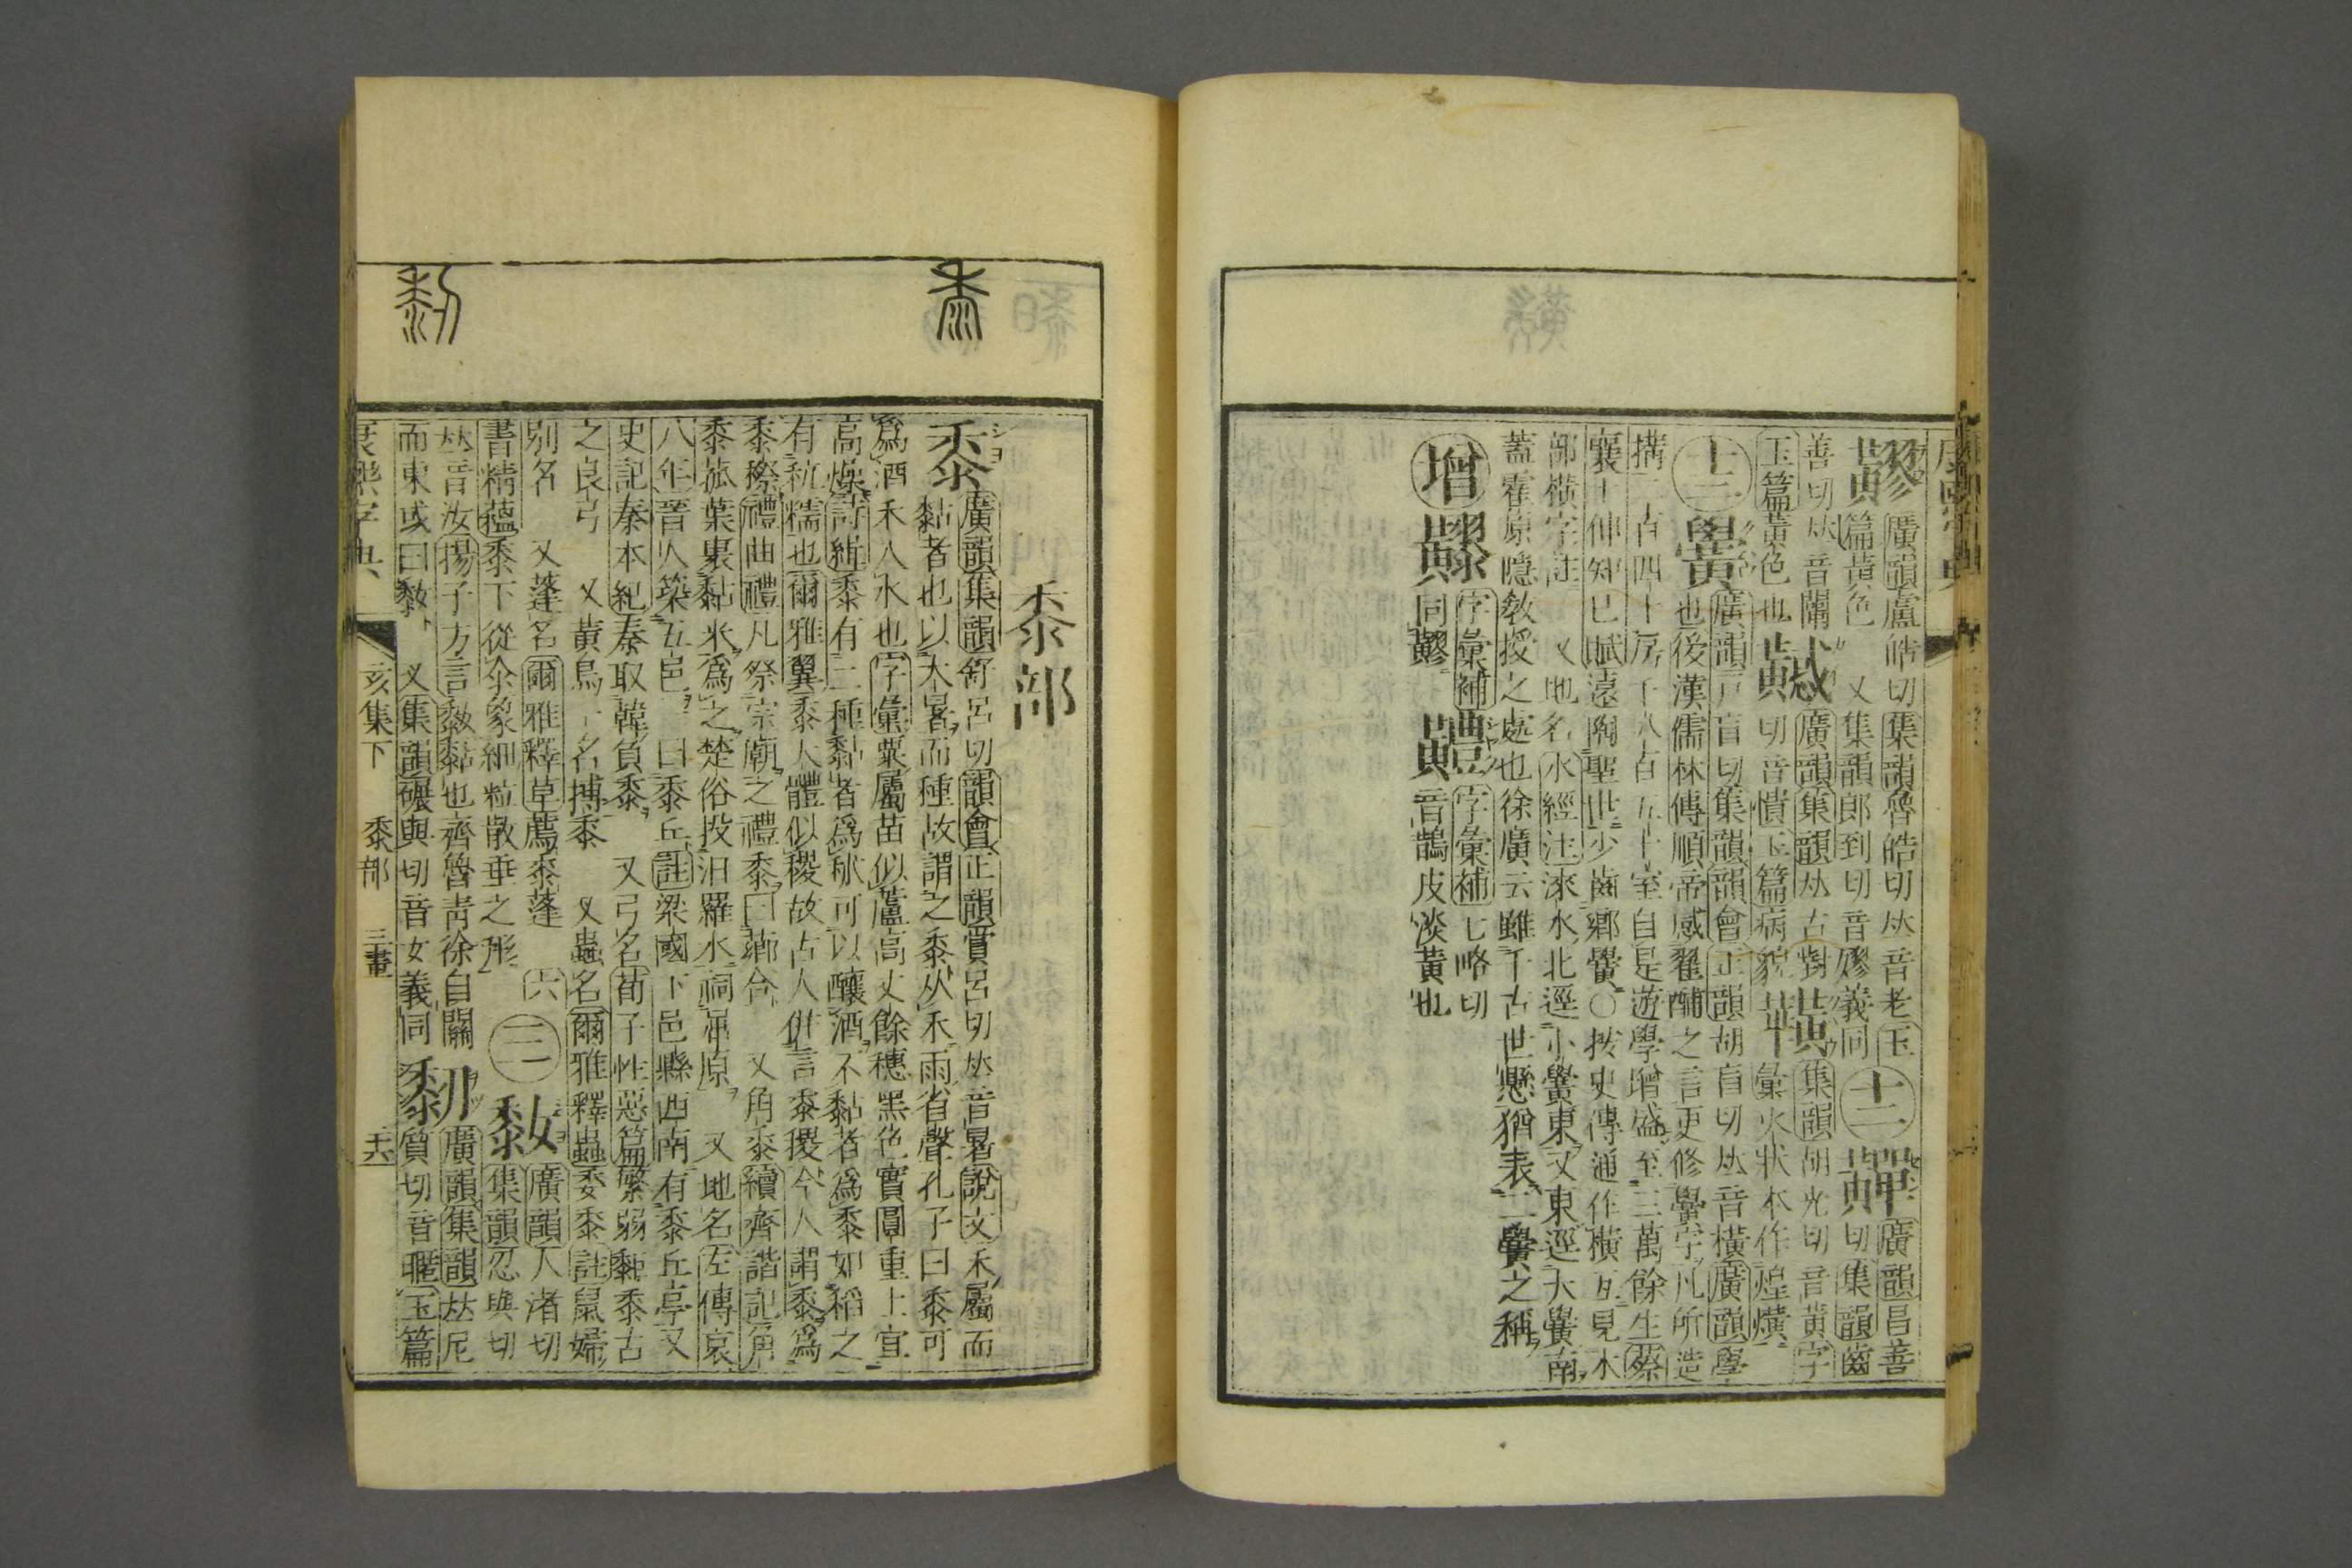 廣韻盧皓切集韻魯皓切𠀤音老玉
篇黃色 又集韻郎到切音㬔義同 十二 廣韻昌善
切集韻齒
善切𠀤音闡 廣韻集韻𠀤古對 集韻胡光切音黃字
玉篇黃色也 切音憒玉篇病貌 彙火狀本作煌熿
十三 黌 廣韻戸盲切集韻韻會正韻胡盲切𠀤音橫廣韻學
也後漢儒林傳順帝感翟酺之言更修黌字凡所造
搆二百四十房千八百五十室自是遊學增盛至三萬餘生蔡
襄十仲知已賦遠陶聖世少齒鄉黌○按史傳通作橫互見木
部橫字註 又地名水經注淶水北逕小黌東又東逕大黌南
蓋霍原隱敎授之處也徐廣云雖千古世懸猶表二黌之稱
增 字彙補 字彙補七略切
同 音鵲皮淡黃也
黍部
黍 廣韻集韻舒呂切韻會正韻賞呂切𠀤音暑說文禾屬而
黏者也以大暑而種故謂之黍从禾雨省聲孔子曰黍可
爲酒禾入水也字彙粟屬苗似蘆高丈餘穗黑色實圓重土宜
高燥詩緝黍有二種黏者爲秫可以釀酒不黏者爲黍如稻之
有秔糯也爾雅翼黍大體似稷故古人併言黍稷今人謂黍爲
黍穄禮曲禮凡祭宗廟之禮黍曰薌合 又角黍續齊諧記角
黍菰葉裹黏米爲之楚俗投汨羅水祠屈原 又地名左傳哀
八年晉人築五邑一曰黍丘註梁國下邑縣西南有黍丘亭又
史記秦本紀秦取韓負黍 又弓名荀子性惡篇繁弱鉅黍古
之良弓 又黃鳥一名搏黍 又蟲名爾雅釋蟲委黍註鼠婦
別名 又蓬名爾雅釋草薦黍蓬 六
書精蘊黍下從氽象細粒散垂之形 三 䵑 廣韻人渚切
集韻忍與切
𠀤音汝揚子方言䵑黏也齊魯靑徐自關
而東或曰䵑 又集韻碾與切音女義同 䵒 廣韻集韻𠀤尼
質切音暱玉篇
康熙字典 亥集下 黍部 三畫 共